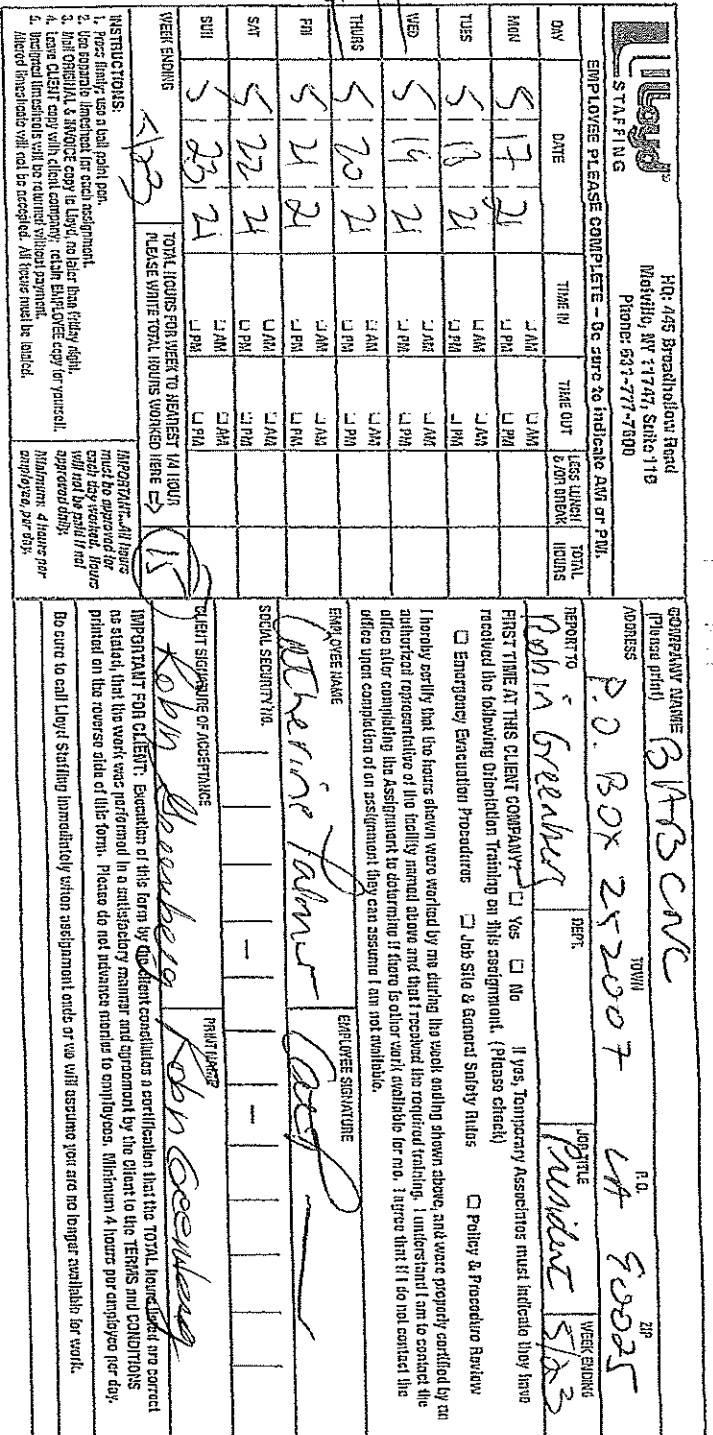 Lloyd®
STAFFING
HQ: 445 Broadhollow Road
Melville, NY 11747 Suite 119
Phone: 631-777-7600
EMPLOYEE PLEASE COMPLETE – Be sure to indicate AM or PM.
DAY DATE TIME IN TIME OUT LESS LUNCH &/OR BREAK TOTAL HOURS
MON 5 17 21 AM PM AM PM
TUES 5 18 21 AM PM AM PM
WED 5 19 21 AM PM AM PM
THURS 5 20 21 AM PM AM PM
FRI 5 21 21 AM PM AM PM
SAT 5 22 21 AM PM AM PM
SUN 5 23 21 AM PM AM PM
WEEK ENDING 5/23
TOTAL HOURS FOR WEEK TO NEAREST 1/4 HOUR
PLEASE WRITE TOTAL HOURS WORKED HERE ⇨ 15
INSTRUCTIONS:
1. Press firmly; use a ball point pen.
2. Use separate timesheet for each assignment.
3. Mail ORIGINAL & INVOICE copy to Lloyd, no later than Friday night.
4. Leave CLIENT copy with client company; retain EMPLOYEE copy for yourself.
5. Unsigned timesheets will be returned without payment.
Altered timesheets will not be accepted. All hours must be totaled.
IMPORTANT: All hours
must be approved for
each day worked. Hours
will not be paid if not
approved daily.
Minimum: 4 hours per
employee, per day.
COMPANY NAME BABCNC
(Please print)
ADDRESS TOWN P.O. ZIP
P.O. BOX 252007 LA 90025
REPORT TO DEPT. JOB TITLE WEEK ENDING
Robin Greenberg President 5/23
FIRST TIME AT THIS CLIENT COMPANY? Yes No If yes, Temporary Associates must indicate they have
received the following Orientation Training on this assignment. (Please check)
Emergency Evacuation Procedures Job Site & General Safety Rules Policy & Procedure Review
I hereby certify that the hours shown were worked by me during the week ending shown above, and were properly certified by an
authorized representative of the facility named above and that I received the required training. I understand I am to contact the
office after completing the Assignment to determine if there is other work available for me. I agree that if I do not contact the
office upon completion of an assignment they can assume I am not available.
EMPLOYEE NAME EMPLOYEE SIGNATURE
Catherine Palmer Cathy
SOCIAL SECURITY NO.
CLIENT SIGNATURE OF ACCEPTANCE PRINT NAME
Robin Greenberg Robin Greenberg
IMPORTANT FOR CLIENT: Execution of this form by the client constitutes a certification that the TOTAL hours listed are correct
as stated, that the work was performed in a satisfactory manner and agreement by the Client to the TERMS and CONDITIONS
printed on the reverse side of this form. Please do not advance monies to employees. Minimum 4 hours per employee per day.
Be sure to call Lloyd Staffing immediately when assignment ends or we will assume you are no longer available for work.